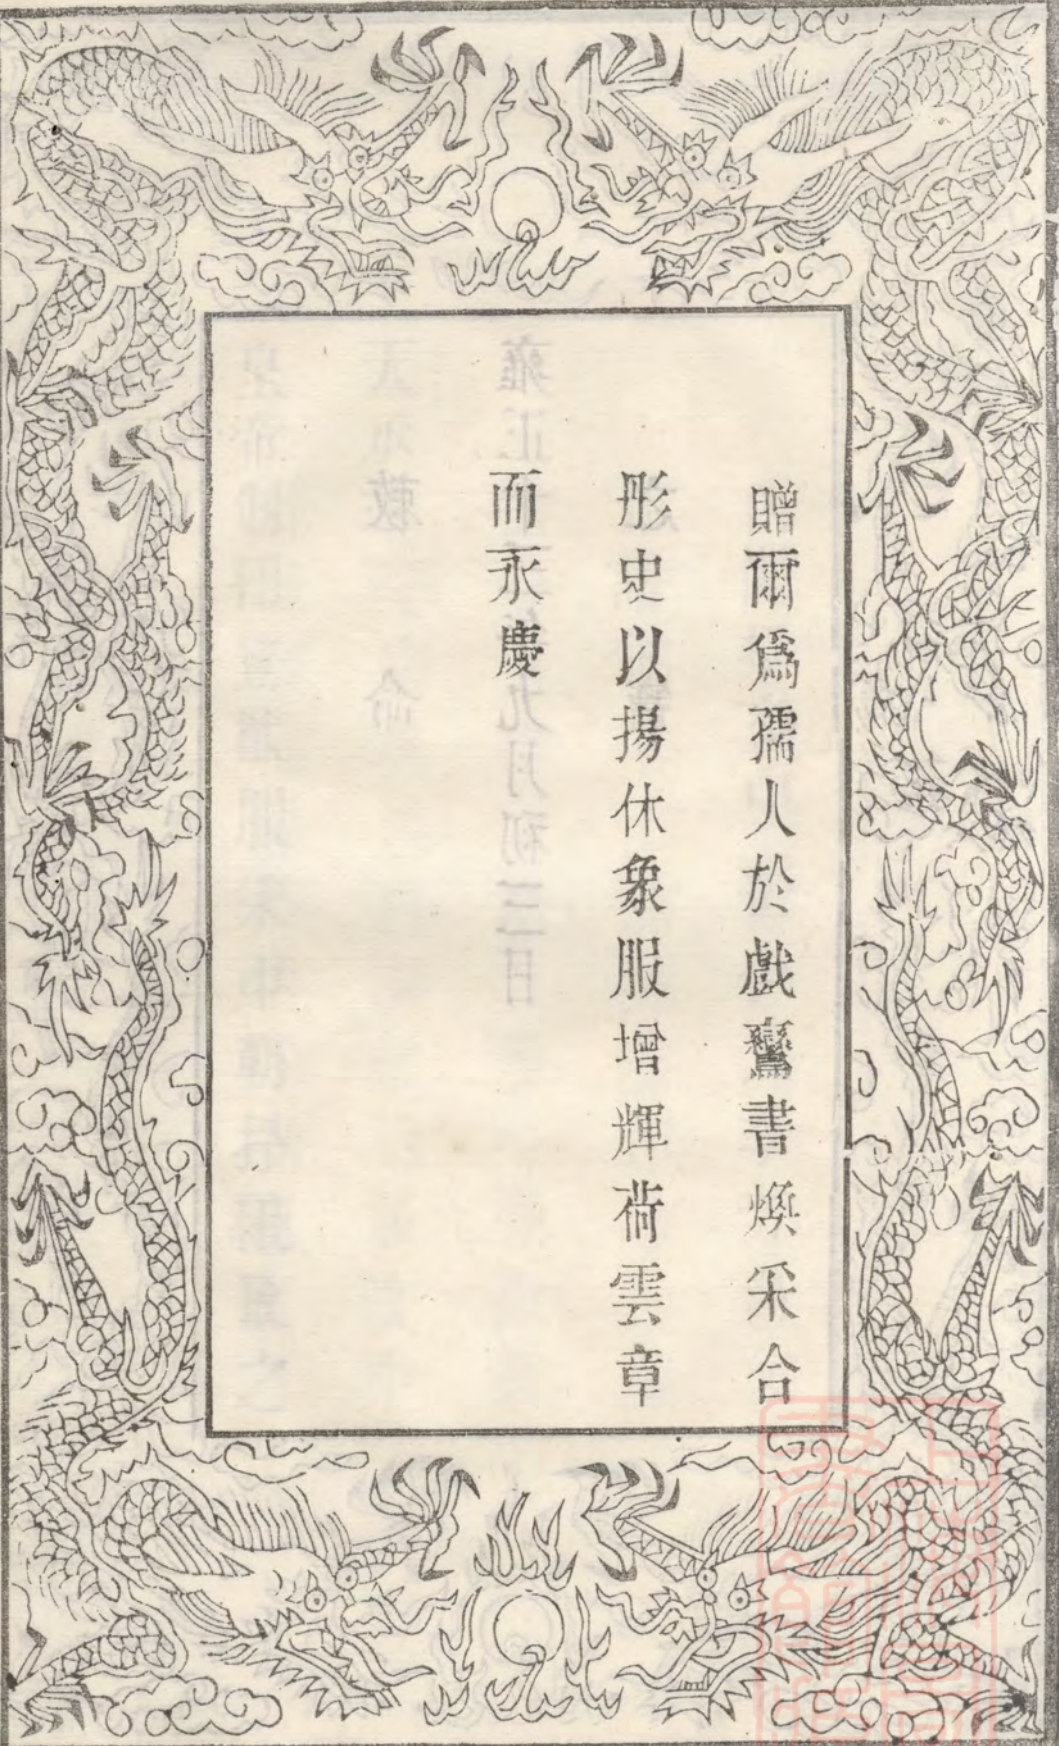 贈爾爲孺人於戲鸞書煥采合
彤史以揚休象服增輝荷雲章
而永慶